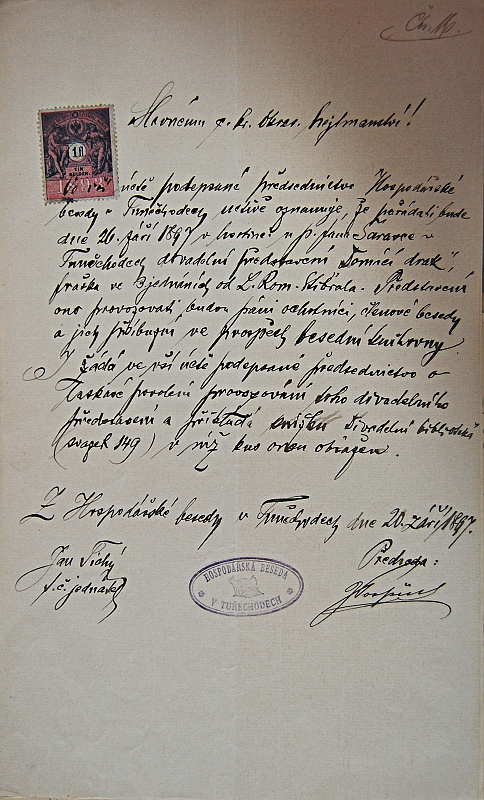 Slavnému c. k. Okres. hejtmanství!
1 fl
EIN GULDEN
V úctě podepsané předsednictvo Hospodářské
besedy v Tunechodech uctivě oznamuje, že pořádati bude
dne 26. září 1897 v hostinci u p. Jana Saravce v
Tunechodech divadelní představení "Domácí drak",
fraška ve 3 jednáních od L. Rom. Stibrala. Představení
ono provozovati budou páni ochotníci, členové besedy
a jich příbuzní ve prospěch besední knihovny.
I žádá ve vší úctě podepsané předsednictvo o
laskavé povolení provozování toho divadelního
představení a přikládá knížku Divadelní bibliotéka
(svazek 149) v níž kus onen obsažen.
Z Hospodářské besedy v Tunechodech dne 20. září 1897.
Jan Tichý
t. č. jednatel
HOSPODÁŘSKÁ BESEDA
V TUŘECHODECH
Předseda: